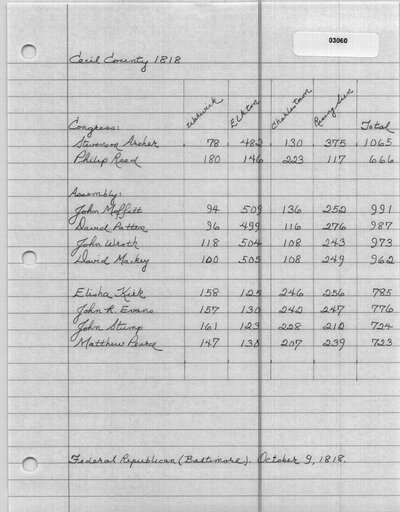 03060
Cecil County 1818
Warwick Elkton Charlestown Rising Sun
Congress: Total
Stevenson Archer 78 482 130 375 1065
Philip Reed 180 146 223 117 666
Assembly:
John Moffitt 94 509 136 252 991
David Patten 96 499 116 276 987
John Wroth 118 504 108 243 973
David Mackey 100 505 108 249 962
Elisha Kirk 158 125 246 256 785
John R. Evans 157 130 242 247 776
John Stump 161 123 228 212 724
Matthew Pearce 147 130 207 239 723
Federal Republican (Baltimore). October 9, 1818.